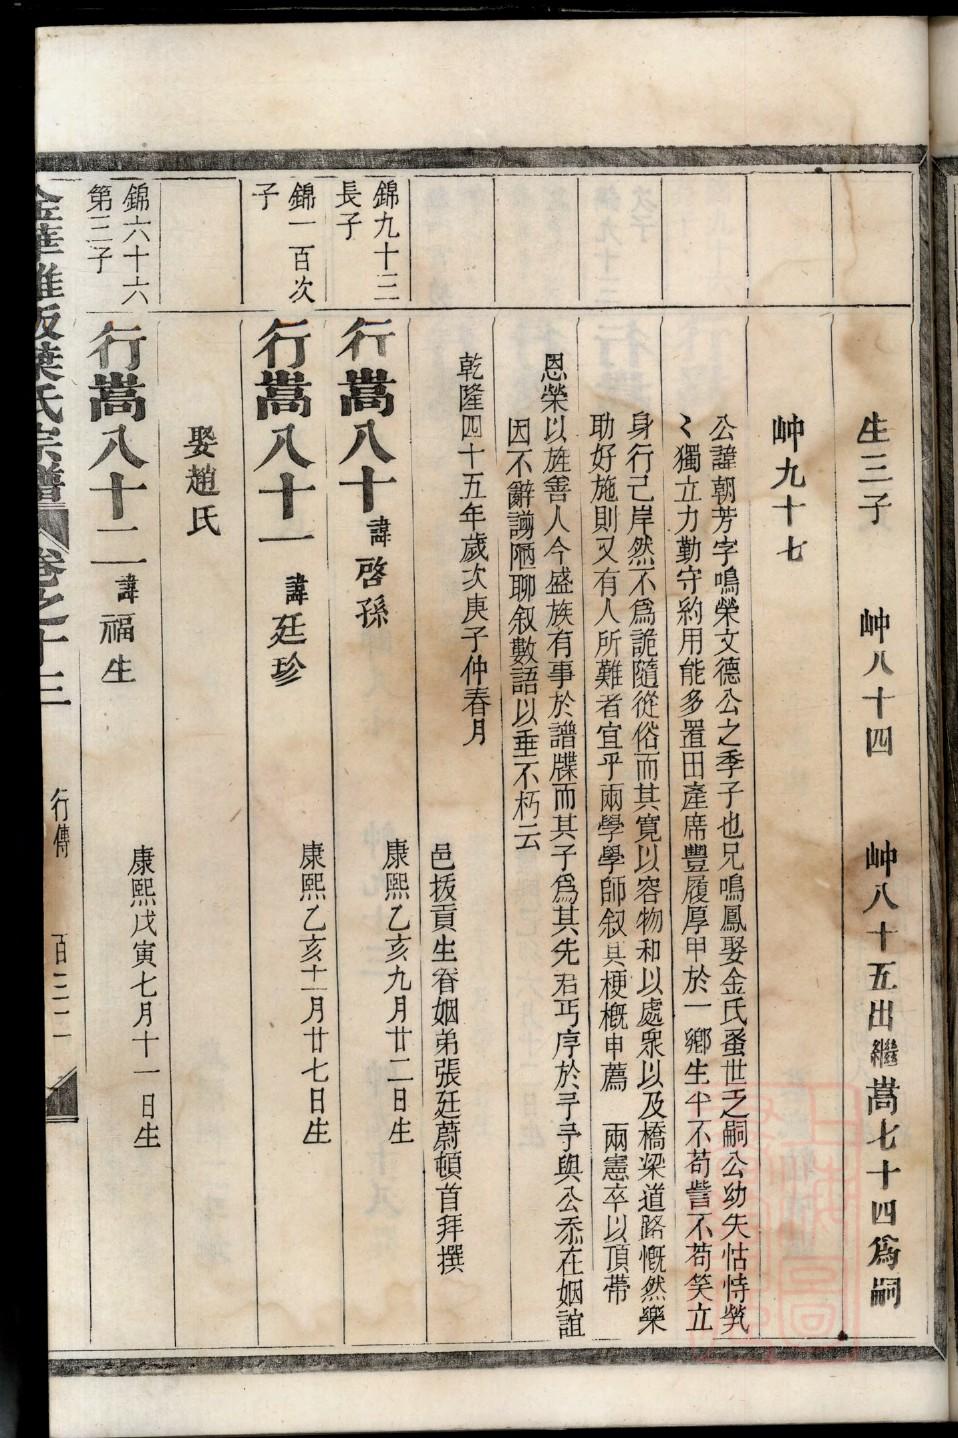 生三子 岫八十四 岫八十五出繼嵩七十四爲嗣
岫九十七
公諱朝芳字鳴榮文德公之季子也兄鳴鳳娶金氏蚤世乏嗣公幼失怙恃煢
〻獨立力勤守約用能多置田產席豐履厚甲於一鄉生平不苟訾不苟笑立
身行己岸然不爲詭隨從俗而其寬以容物和以處衆以及橋梁道路慨然樂
助好施則又有人所難者宜乎兩學學師叙其梗概申薦 兩憲卒以頂帶
恩榮以旌善人今盛族有事於譜牒而其子爲其先君丐序於予予與公忝在姻誼
因不辭謭陋聊叙數語以垂不朽云
乾隆四十五年歲次庚子仲春月
邑拔貢生眷姻弟張廷蔚頓首拜撰
錦九十三
長子
行嵩八十 諱啓孫
康熙乙亥九月廿二日生
錦一百次
子
行嵩八十一 諱廷珍
康熙乙亥十一月廿七日生
娶趙氏
錦六十六
第三子
行嵩八十二 諱福生
康熙戊寅七月十一日生
金華雅畈葉氏宗譜 卷之十三 行傳 百三十二